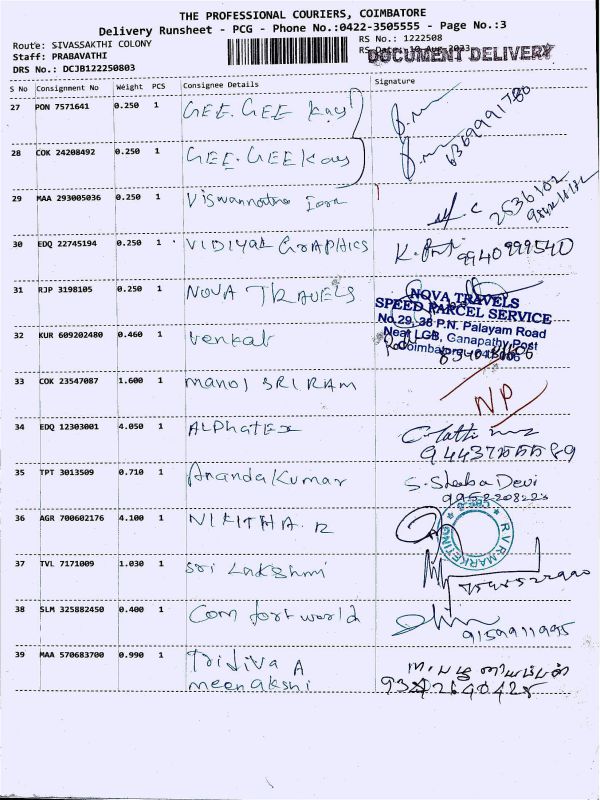 THE PROFESSIONAL COURIERS, COIMBATORE
Delivery Runsheet - PCG - Phone No.:0422-3505555 - Page No.:3
Route: SIVASSAKTHI COLONY
RS No.: 1222508
Staff: PRABAVATHI
RS Date: 10 Aug 2023
DOCUMENT DELIVERY
DRS No.: DCJB122250803
S No Consignment No Weight PCS Consignee Details Signature
27 PON 7571641 0.250 1 GEE.GEE Kay
6369991780
28 COK 24208492 0.250 1 GEE.GEE Kay
29 MAA 293005036 0.250 1 Viswannatha
2536102
30 EDQ 22745194 0.250 1 VIDIYAL GRAPHICS
9940999540
31 RJP 3198105 0.250 1 NOVA TRAVELS
NOVA TRAVELS
SPEED PARCEL SERVICE
No.29, 38 P.N. Palayam Road
Near LGB, Ganapathy Post
Coimbatore - 641006
32 KUR 609202480 0.460 1 Venkat
33 COK 23547087 1.600 1 manoj SRIRAM
NP
34 EDQ 12303001 4.050 1 ALPhatEx
35 TPT 3013509 0.710 1 AnandaKumar S. Sheeba Devi
9952208223
36 AGR 700602176 4.100 1 NIKITHA.R
R V R MARKETING
37 TVL 7171009 1.030 1 Sri Lakshmi
38 SLM 325882450 0.400 1 Comfort world
9159911995
39 MAA 570683700 0.990 1 Tridiva A
meenakshi